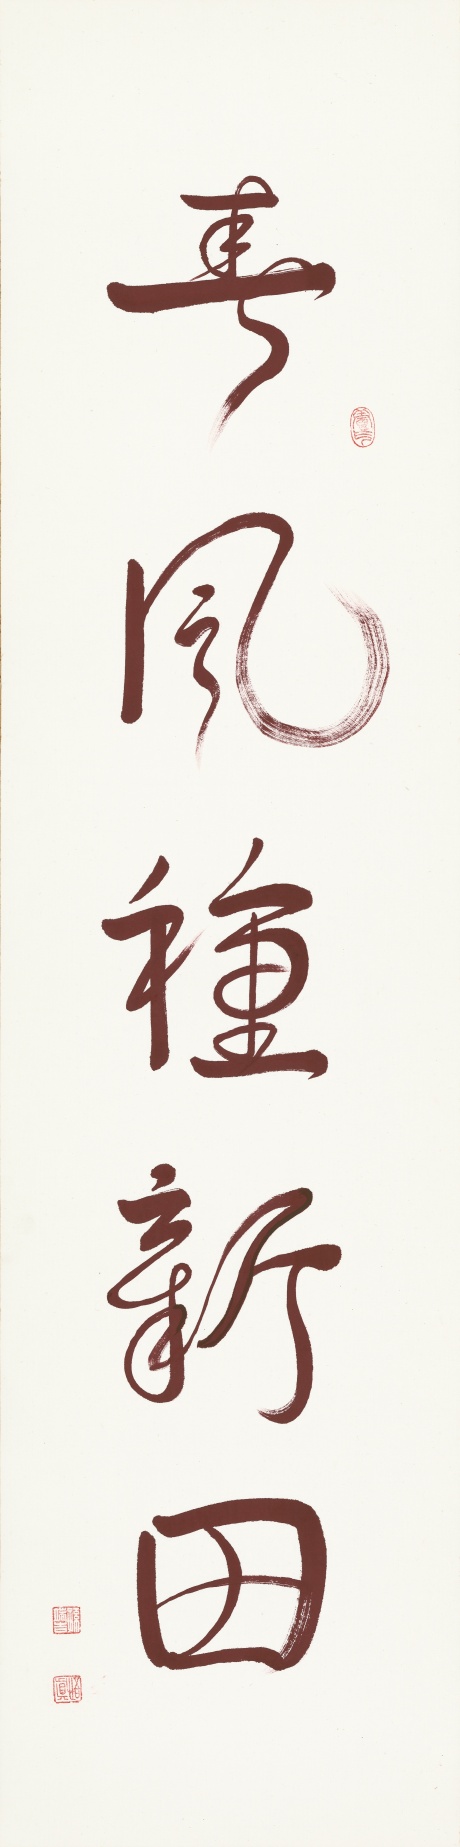 春風種新田